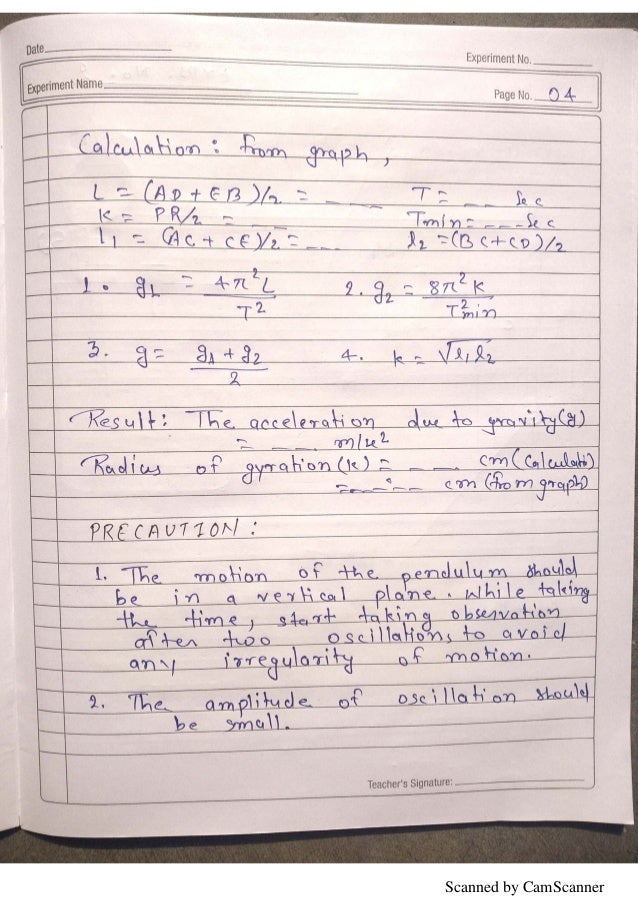 Date
Experiment No.
Experiment Name
Page No. 04
Calculation: from graph,
L = (AD + EB)/2 = _ _ _ T = _ _ Sec
K = PR/2 = _ _ _ Tmin = _ _ _ Sec
l1 = (AC + CE)/2 = _ _ l2 = (BC+CD)/2
1. g1 = 4π²L / T² 2. g2 = 8π²K / T²min
3. g = g1 + g2 / 2 4. k = √l1l2
Result: The acceleration due to gravity(g)
= _ _ _ m/se2
Radius of gyration (k) = _ _ _ cm (Calculati)
= _ _ _ cm (from graph)
PRECAUTION:
1. The motion of the pendulum should
be in a vertical plane. While taking
the time, start taking observation
after two oscillations, to avoid
any irregularity of motion.
2. The amplitude of oscillation should
be small.
Teacher's Signature:
Scanned by CamScanner